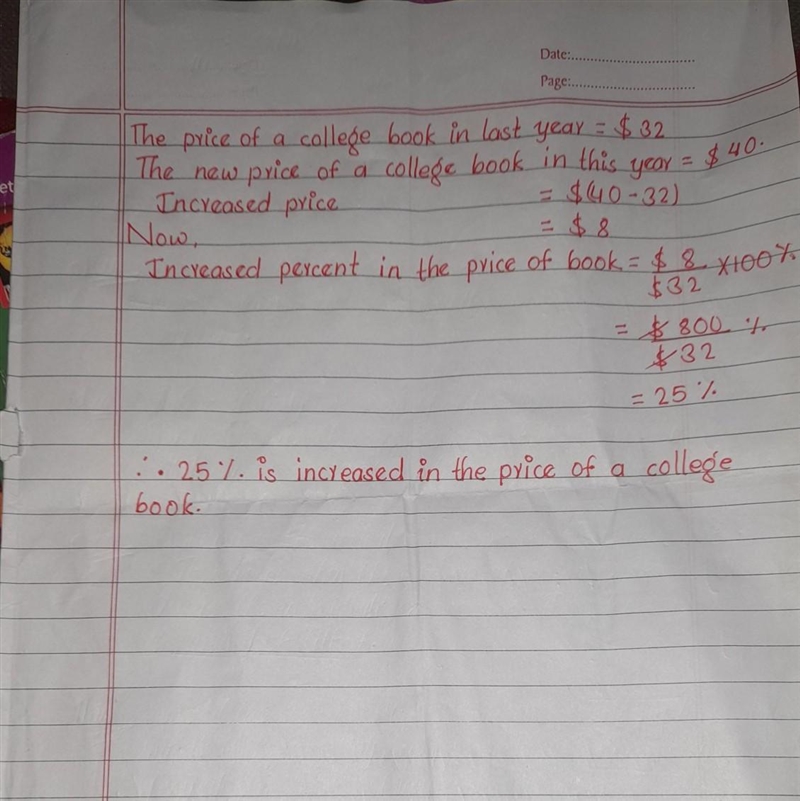 Date:..............................
Page:..............................
The price of a college book in last year = $ 32
The new price of a college book in this year = $ 40.
Increased price = $(40 - 32)
= $ 8
Now,
Increased percent in the price of book = $ 8 / $ 32 × 100 %
= $ 800 / $ 32 %
= 25 %
∴ 25 % is increased in the price of a college
book.
et